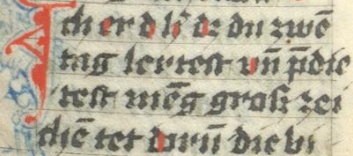 Ich er d h̄ dz du zwē
tag lertest vn̄ p̄die
test mēg groſz zei
chē tet darū die vij